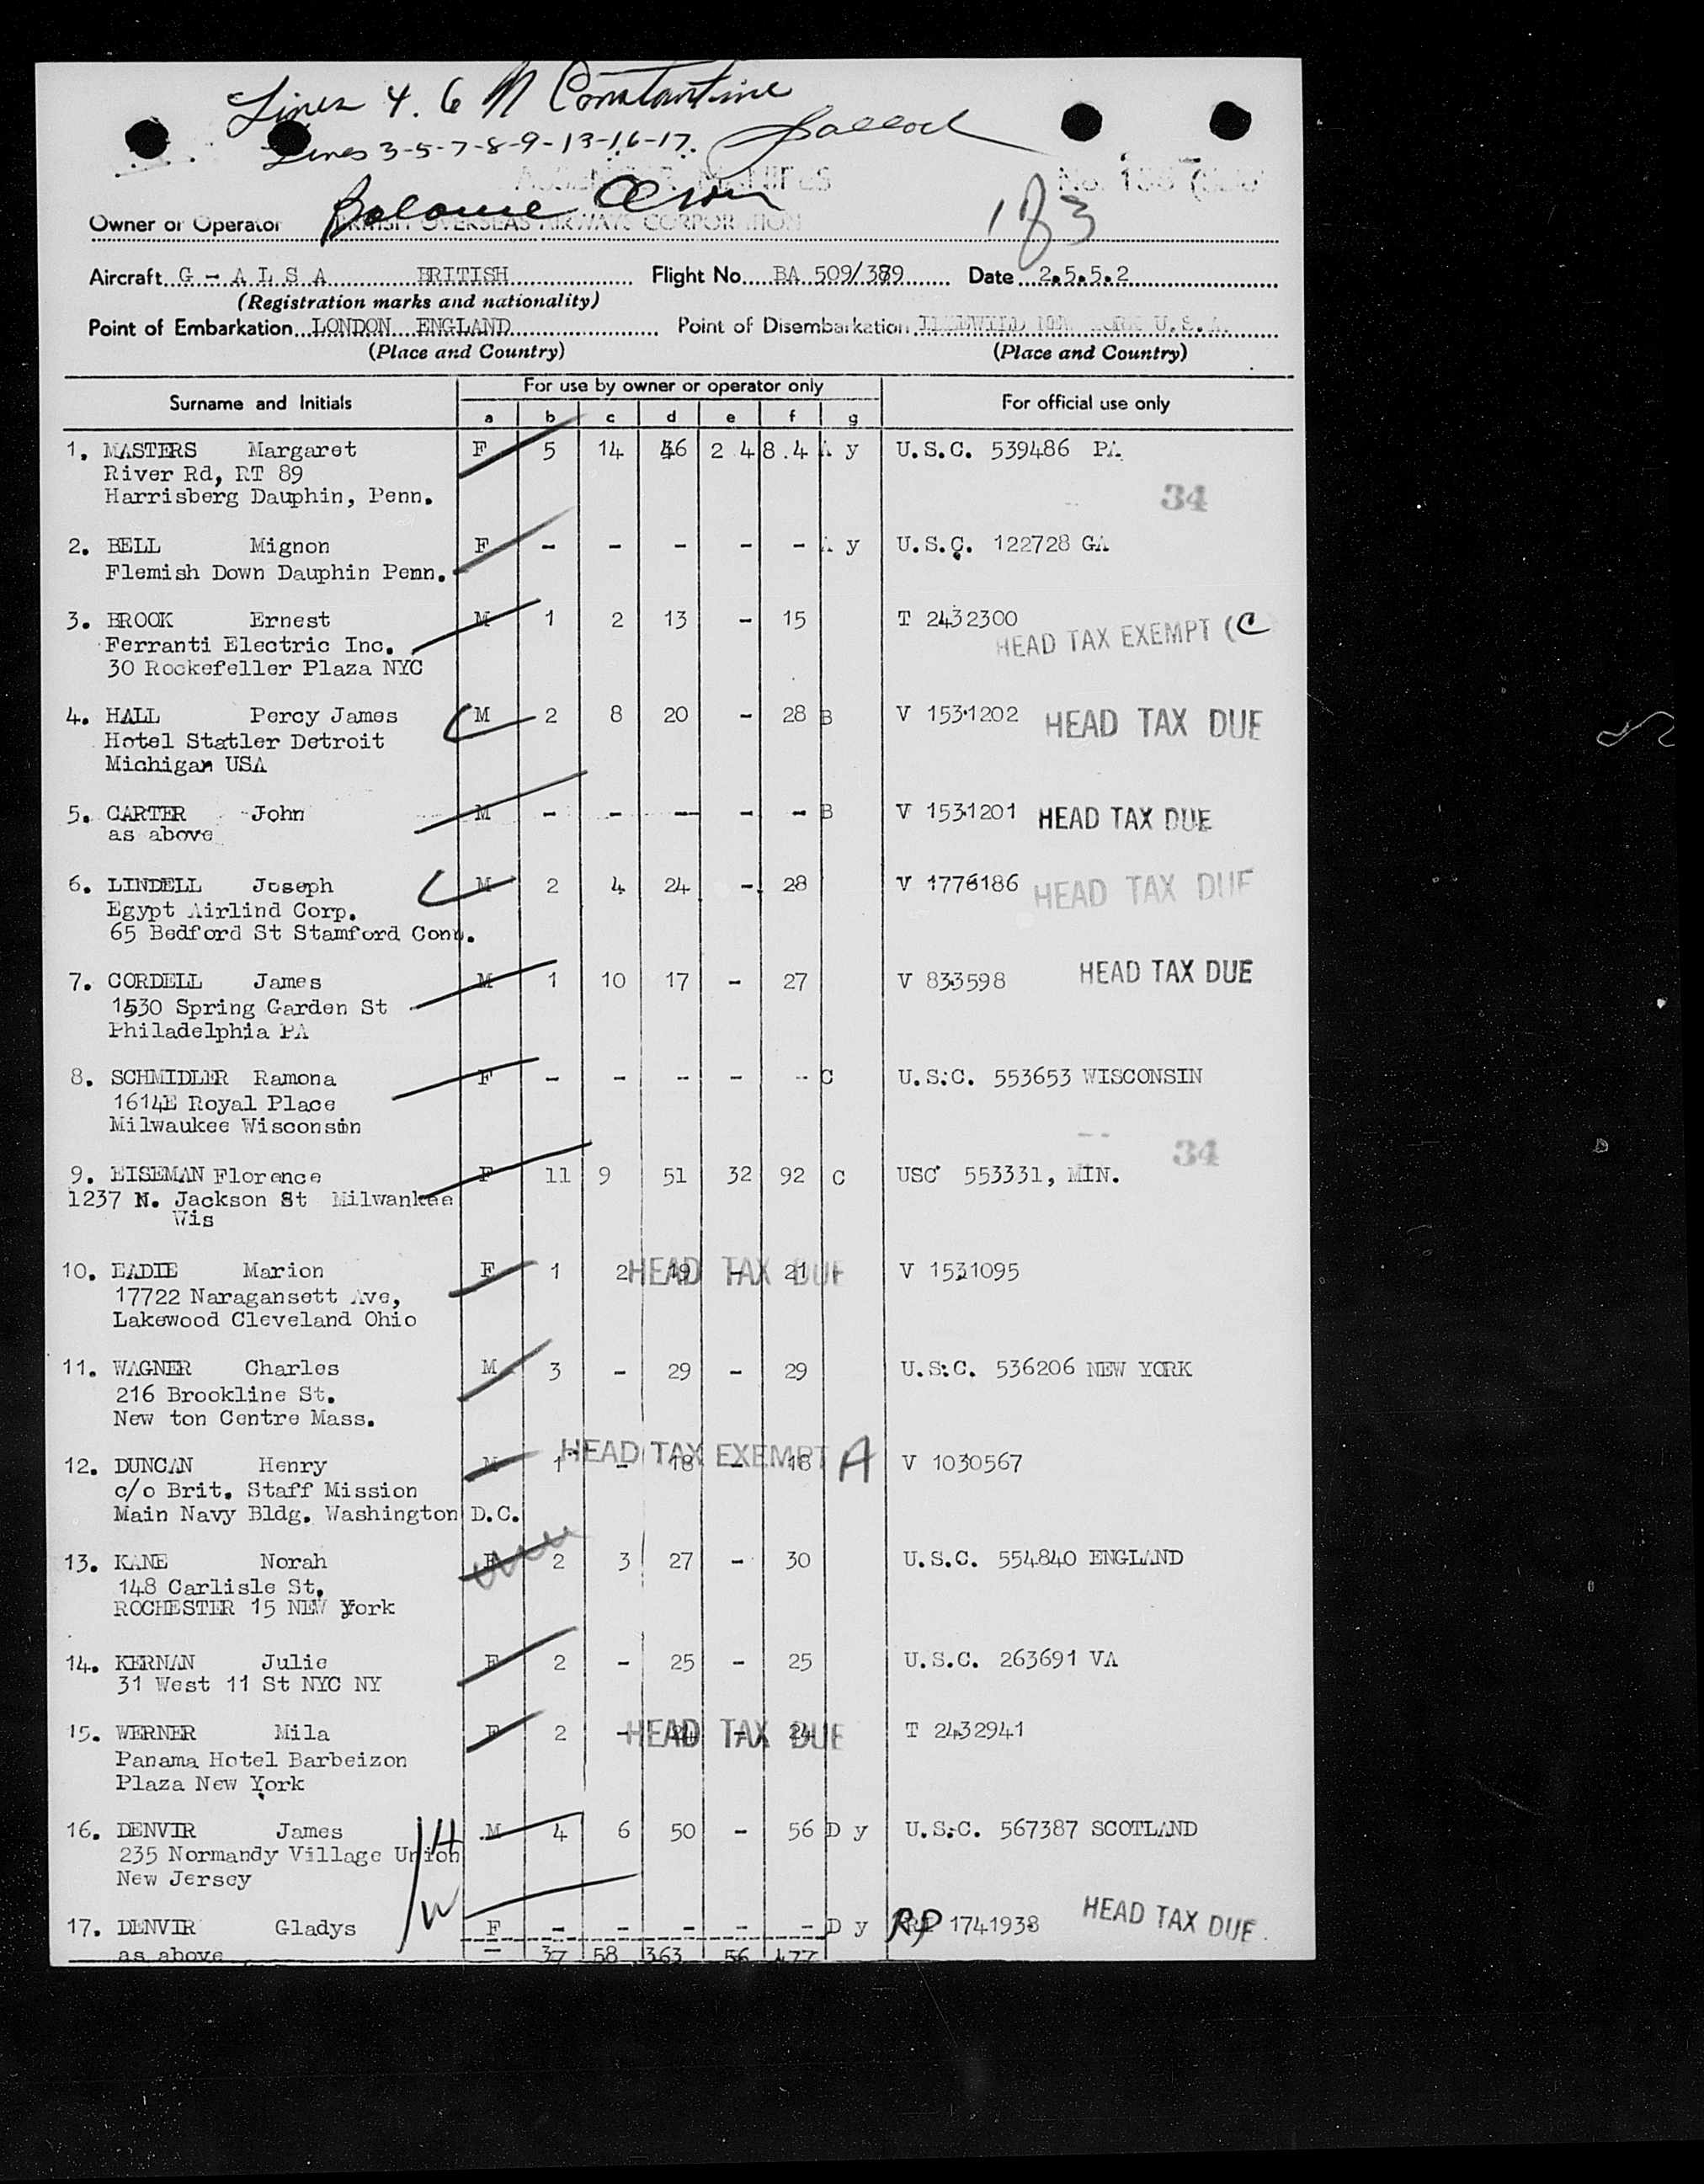 Lines 4. 6 N Constantine
Lines 3-5-7-8-9-13-16-17.
Balance
Owner or Operator BRITISH OVERSEAS AIRWAYS CORPORATION 183
Aircraft G - A L S A BRITISH Flight No. BA 509/389 Date 2.5.5.2
(Registration marks and nationality)
Point of Embarkation LONDON ENGLAND Point of Disembarkation IDLEWILD NEW YORK U.S.A.
(Place and Country) (Place and Country)
Surname and Initials For use by owner or operator only For official use only
a b c d e f g
1. MASTERS Margaret F 5 14 46 2 4 8.4 A y U.S.C. 539486 PA.
River Rd, RT 89
Harrisberg Dauphin, Penn. 34
2. BELL Mignon F - - - - - A y U.S.C. 122728 GA
Flemish Down Dauphin Penn.
3. BROOK Ernest M 1 2 13 - 15 T 2432300
Ferranti Electric Inc. HEAD TAX EXEMPT (C
30 Rockefeller Plaza NYC
4. HALL Percy James M 2 8 20 - 28 B V 1531202 HEAD TAX DUE
Hotel Statler Detroit
Michigan USA
5. CARTER John M - - - - - B V 1531201 HEAD TAX DUE
as above
6. LINDELL Joseph M 2 4 24 - 28 V 1776186 HEAD TAX DUE
Egypt Airlind Corp.
65 Bedford St Stamford Conn.
7. CORDELL James M 1 10 17 - 27 V 833598 HEAD TAX DUE
1530 Spring Garden St
Philadelphia PA
8. SCHMIDLER Ramona F - - - - - C U.S.C. 553653 WISCONSIN
1614E Royal Place
Milwaukee Wisconsin
34
9. EISEMAN Florence F 11 9 51 32 92 C USC 553331, MIN.
1237 N. Jackson St Milwankee
Wis
10. EADIE Marion F 1 2 19 - 21 HEAD TAX DUE V 1531095
17722 Naragansett Ave,
Lakewood Cleveland Ohio
11. WAGNER Charles M 3 - 29 - 29 U.S.C. 536206 NEW YORK
216 Brookline St.
New ton Centre Mass.
12. DUNCAN Henry M 1 - 18 - 18 HEAD TAX EXEMPT A V 1030567
c/o Brit. Staff Mission
Main Navy Bldg. Washington D.C.
13. KANE Norah F 2 3 27 - 30 U.S.C. 554840 ENGLAND
148 Carlisle St.
ROCHESTER 15 NEW York
14. KERNAN Julie F 2 - 25 - 25 U.S.C. 263691 VA
31 West 11 St NYC NY
15. WERNER Mila F 2 - 24 - 24 HEAD TAX DUE T 2432941
Panama Hotel Barbeizon
Plaza New York
16. DENVIR James M 4 6 50 - 56 D y U.S.C. 567387 SCOTLAND
235 Normandy Village Union
New Jersey
17. DENVIR Gladys F - - - - - D y RP 1741938 HEAD TAX DUE
as above 37 58 363 56 477